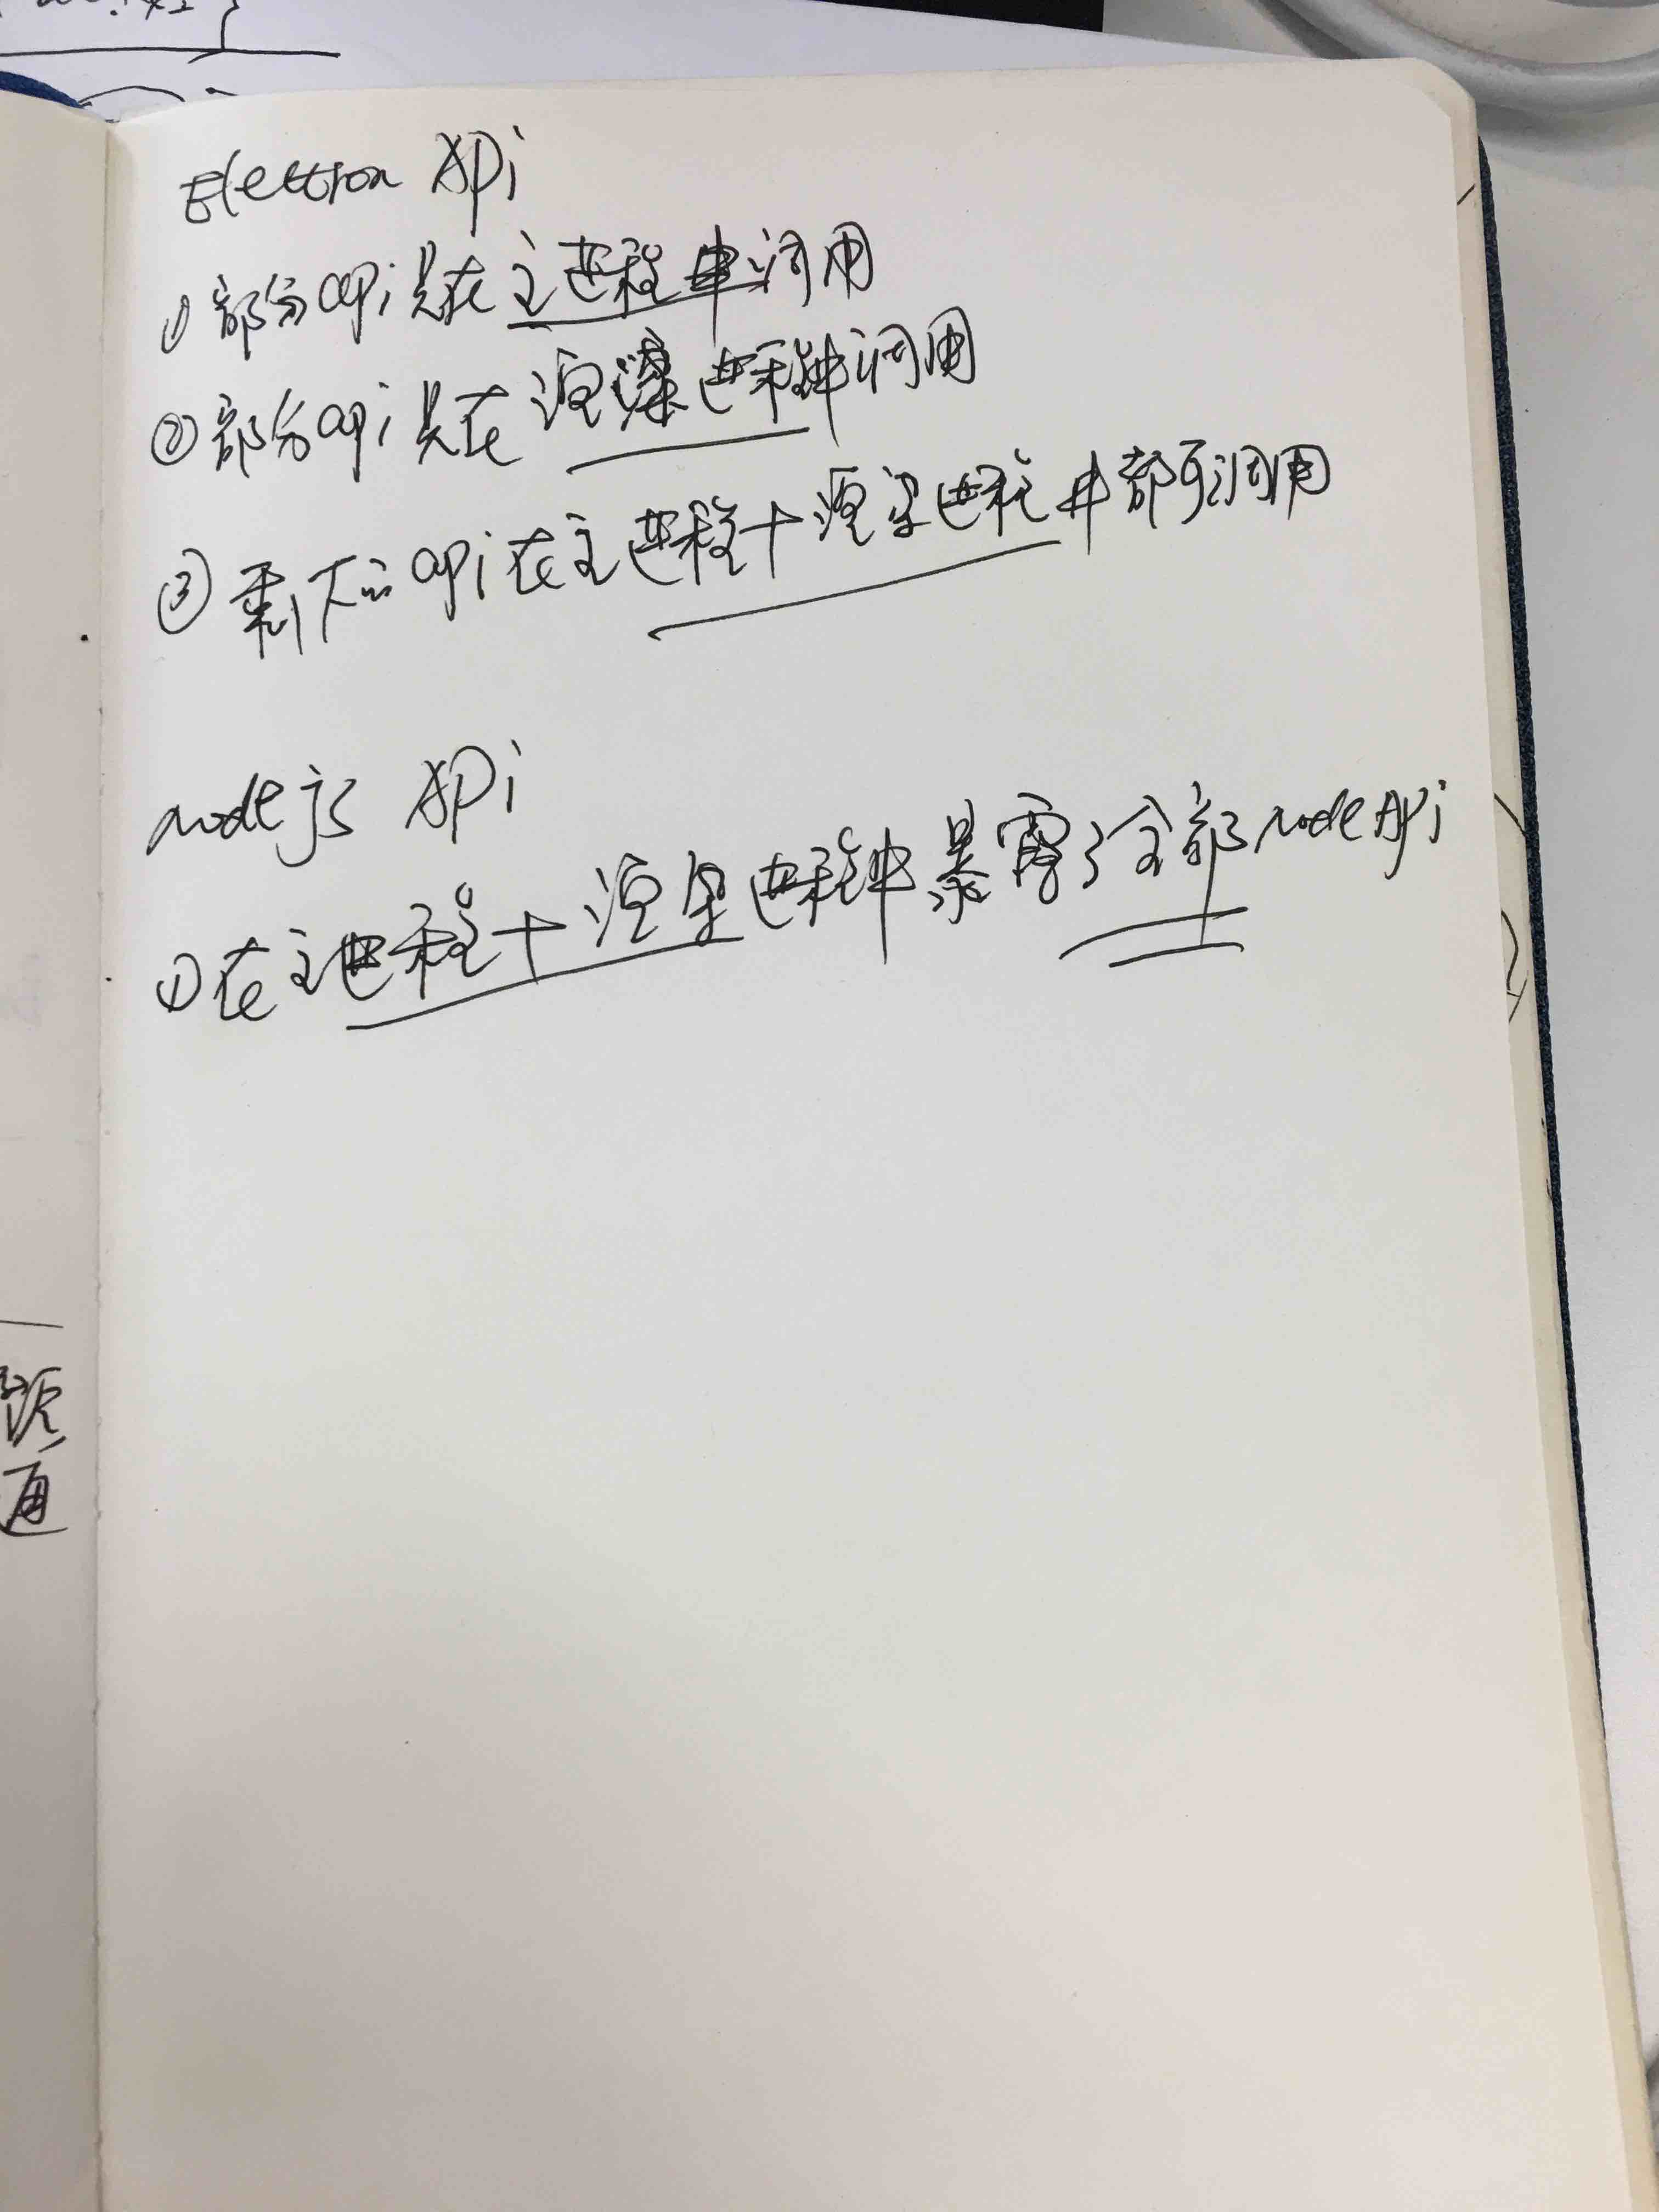 Electron API
① 部分api是在主进程中调用
② 部分api是在渲染进程中调用
③ 剩下的api在主进程+渲染进程中都可调用
nodejs API
① 在主进程+渲染进程中暴露了全部node Api
通